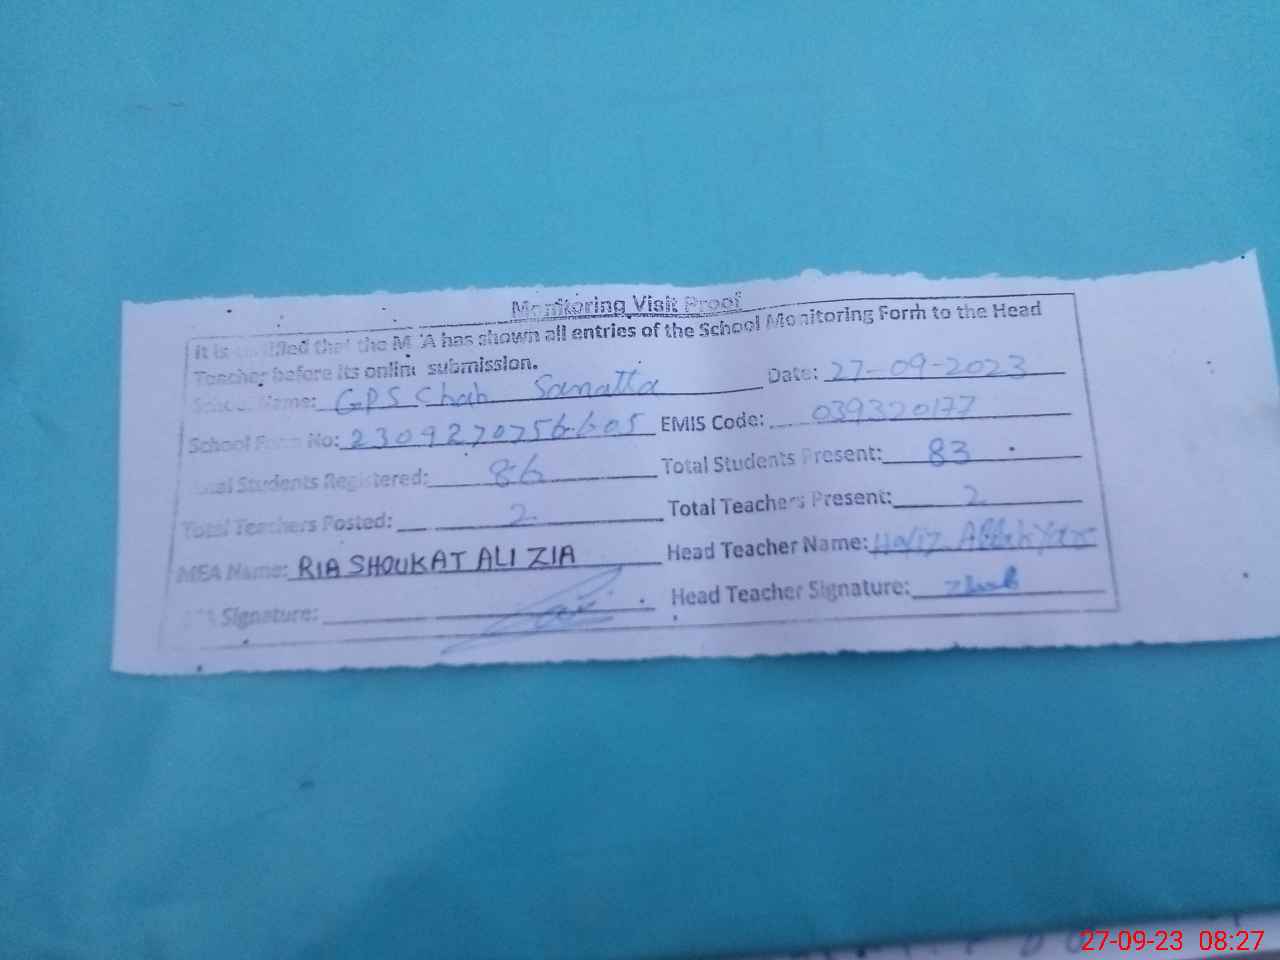 Monitoring Visit Proof
It is certified that the MEA has shown all entries of the School Monitoring Form to the Head
Teacher before its online submission.
School Name: GPS Chah Sanatta Date: 27-09-2023
School Form No: 2309270756605 EMIS Code: 039320177
Total Students Registered: 86 Total Students Present: 83
Total Teachers Posted: 2 Total Teachers Present: 2
MEA Name: RIA SHOUKAT ALI ZIA Head Teacher Name: Hafiz Allah Yar
MEA Signature: Head Teacher Signature:
27-09-23 08:27